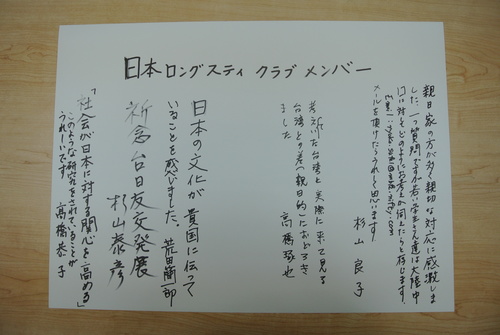 日本ロングスティ クラブ メンバー
親日家の方が多く親切な対応に感激しま
した。一つ質問ですが若い学生さん達は大陸中
口に対そどのようにお考えか伺えたらと存じます
メールを頂けたらうれしく思います
杉山良子
台湾と実際に来て見る
台湾との差へ(親日的)におどろき
ました
高橋琢也
日本の文化が貴国に伝って
いることを感じました。荒田蘭一郎
祈念台日友交発展
杉山泰彦
「社会が日本に対する関心を高める」
このような研究をされて、ることが
うれしいです 高橋恭子